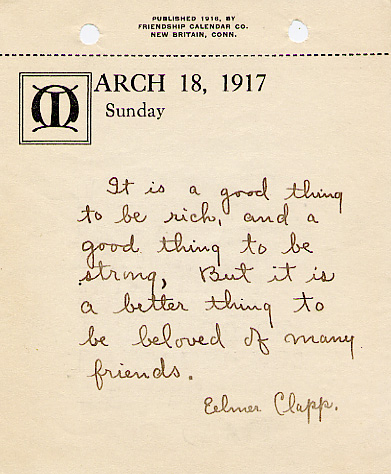 PUBLISHED 1916, BY
FRIENDSHIP CALENDAR CO.
NEW BRITAIN, CONN.
MARCH 18, 1917
Sunday
It is a good thing
to be rich, and a
good thing to be
strong, But it is
a better thing to
be beloved of many
friends.
Eelmer Clapp.